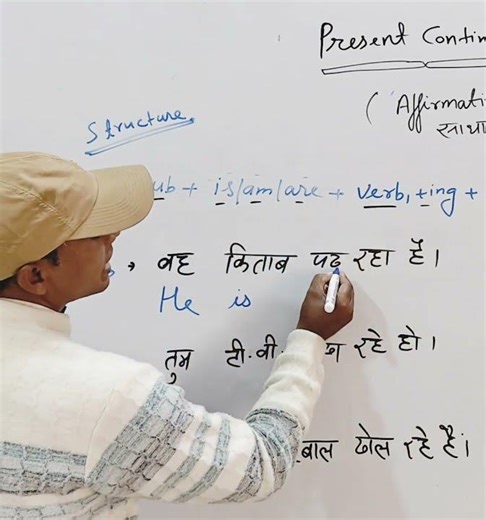 Present Contin
( Affirmati
साधा
Structure
ub + is/am/are + verb, + ing +
वह किताब पढ़ रहा है।
He is
तुम टी.वी. रहे हो।
रहे हैं।